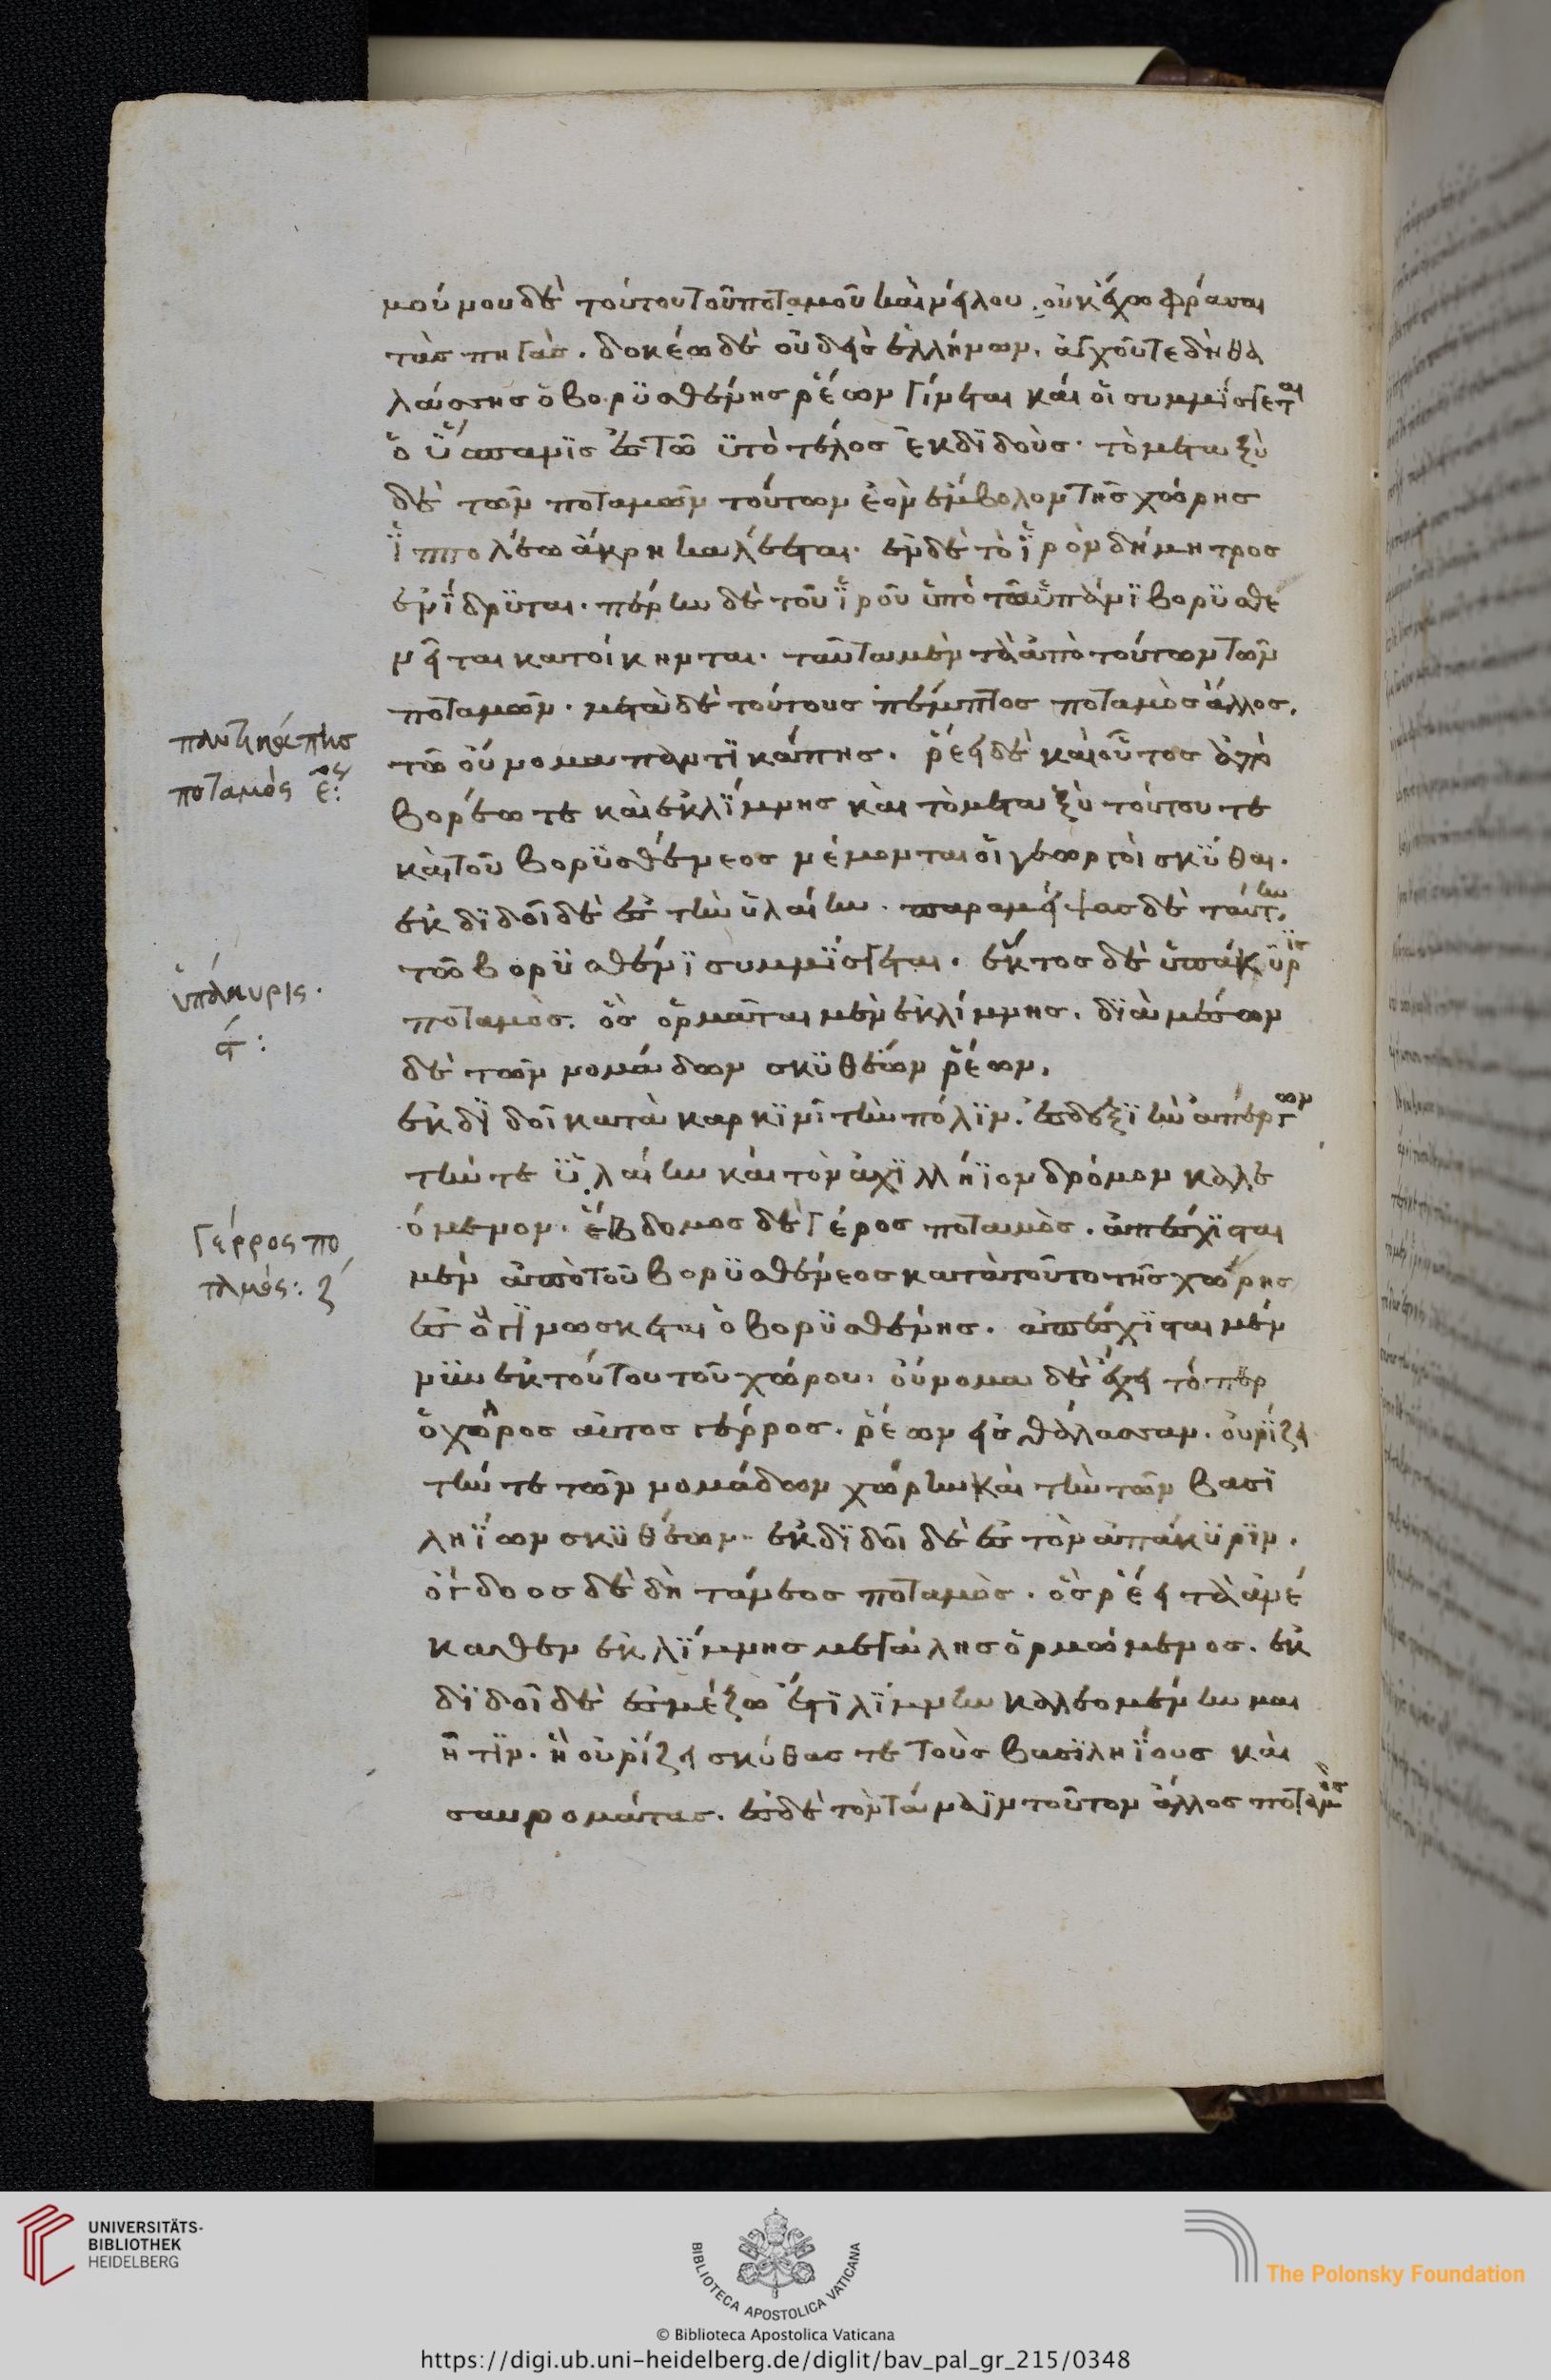 μούνου δὲ τούτου τοῦ ποταμοῦ καὶ νείλου. οὐκ ἔχω φράσαι
τὰς πηγάς. δοκέω δὲ οὐδεὶς ἑλλήνων. ἀγχοῦ τε δὴ θα
λάσσης ὁ βορϋσθένης ῥέων γίνεται καί οἱ συμμίσγεται
ὁ ὕπανις ἐς τὸ ϋτὸ τέλος ἐκδϊδούς. τὸ μεταξὺ
δὲ τῶν ποταμῶν τούτων ἐὸν ἔμβολον τῆς χώρης
ἵππολέω ἄκρη καλέεται. ἐν δὲ τὸ ἱρὸν δήμητρος
ἐνίδρϋται. πέρην δὲ τοῦ ἱροῦ ὑπὸ τῶ ὑπάνϊ βορϋσθε
νεῖται κατοίκηνται. ταῦτα μὲν τὰ ἀπὸ τούτων τῶν
ποταμῶν. μετὰ δὲ τούτους πέμπτος ποταμὸς ἄλλος,
τῶ οὔνομα παντϊκάπης. ῥέει δὲ καὶ οὗτος ἀπὸ
βορέω τε καὶ ἐκ λΐμνης καὶ τὸ μεταξὺ τούτου τε
καὶ τοῦ βορϋσθένεος νέμονται οἱ γεωργοὶ σκΰθαι.
ἐκδϊδοῖ δὲ ἐς τὴν ὑλαίην. παραμείψας δὲ ταύτην
τῶ βορϋσθένϊ συμμίσγεται. ἕκτος δὲ ὑπάκϋρϊς
ποταμός. ὃς ὁρμᾶται μὲν ἐκ λίμνης. δϊὰ μέσων
δὲ τῶν νομάδων σκϋθέων ῥέων,
ἐκδϊδοῖ κατὰ καρκϊνῖτιν πόλϊν. ἐς δεξϊὴν ἀπέργων
τήν τε ὑλαίην καὶ τὸν ἀχϊλλήϊον δρόμον καλε
όμενον. ἕβδομος δὲ γέρος ποταμός. ἀπέσχισται
μὲν ἀπὸ τοῦ βορϋσθένεος κατὰ τοῦτο τῆς χώρης
ἐς ὃ γϊνώσκεται ὁ βορϋσθένης. ἀπέσχϊσται μέν
νϋν ἐκ τούτου τοῦ χώρου. οὔνομα δὲ ἔχει τό περ
ὁ χῶρος αὐτὸς γέρρος. ῥέων εἰς θάλασσαν. οὐρίζει
τήν τε τῶν νομάδων χώρην καὶ τὴν τῶν βασϊ
ληΐων σκϋθέων. ἐκδϊδοῖ δὲ ἐς τὸν ὑπάκϋρϊν.
ὄγδοος δὲ δὴ τάνεος ποταμός. ὃς ῥέει τὰ ἀνέ
καθεν ἐκ λΐμνης μεγάλης ὁρμώμενος. ἐκ
δϊδοῖ δὲ ἐς μέζω ἔτϊ λΐμνην καλεομένην μαι
ῆτϊν. ἣ οὐρίζει σκύθας τε τοὺς βασϊληΐους καὶ
σαυρομάτας. ἐς δὲ τὸν τάναϊν τοῦτον ἄλλος ποταμὸς
παντικάπης
ποταμὸς εος:
ὑπάκυρις.
ϛ:
Γέρρος πο
ταμός: ζ
UNIVERSITÄTS-
BIBLIOTHEK
HEIDELBERG
BIBLIOTECA APOSTOLICA VATICANA
The Polonsky Foundation
© Biblioteca Apostolica Vaticana
https://digi.ub.uni-heidelberg.de/diglit/bav_pal_gr_215/0348